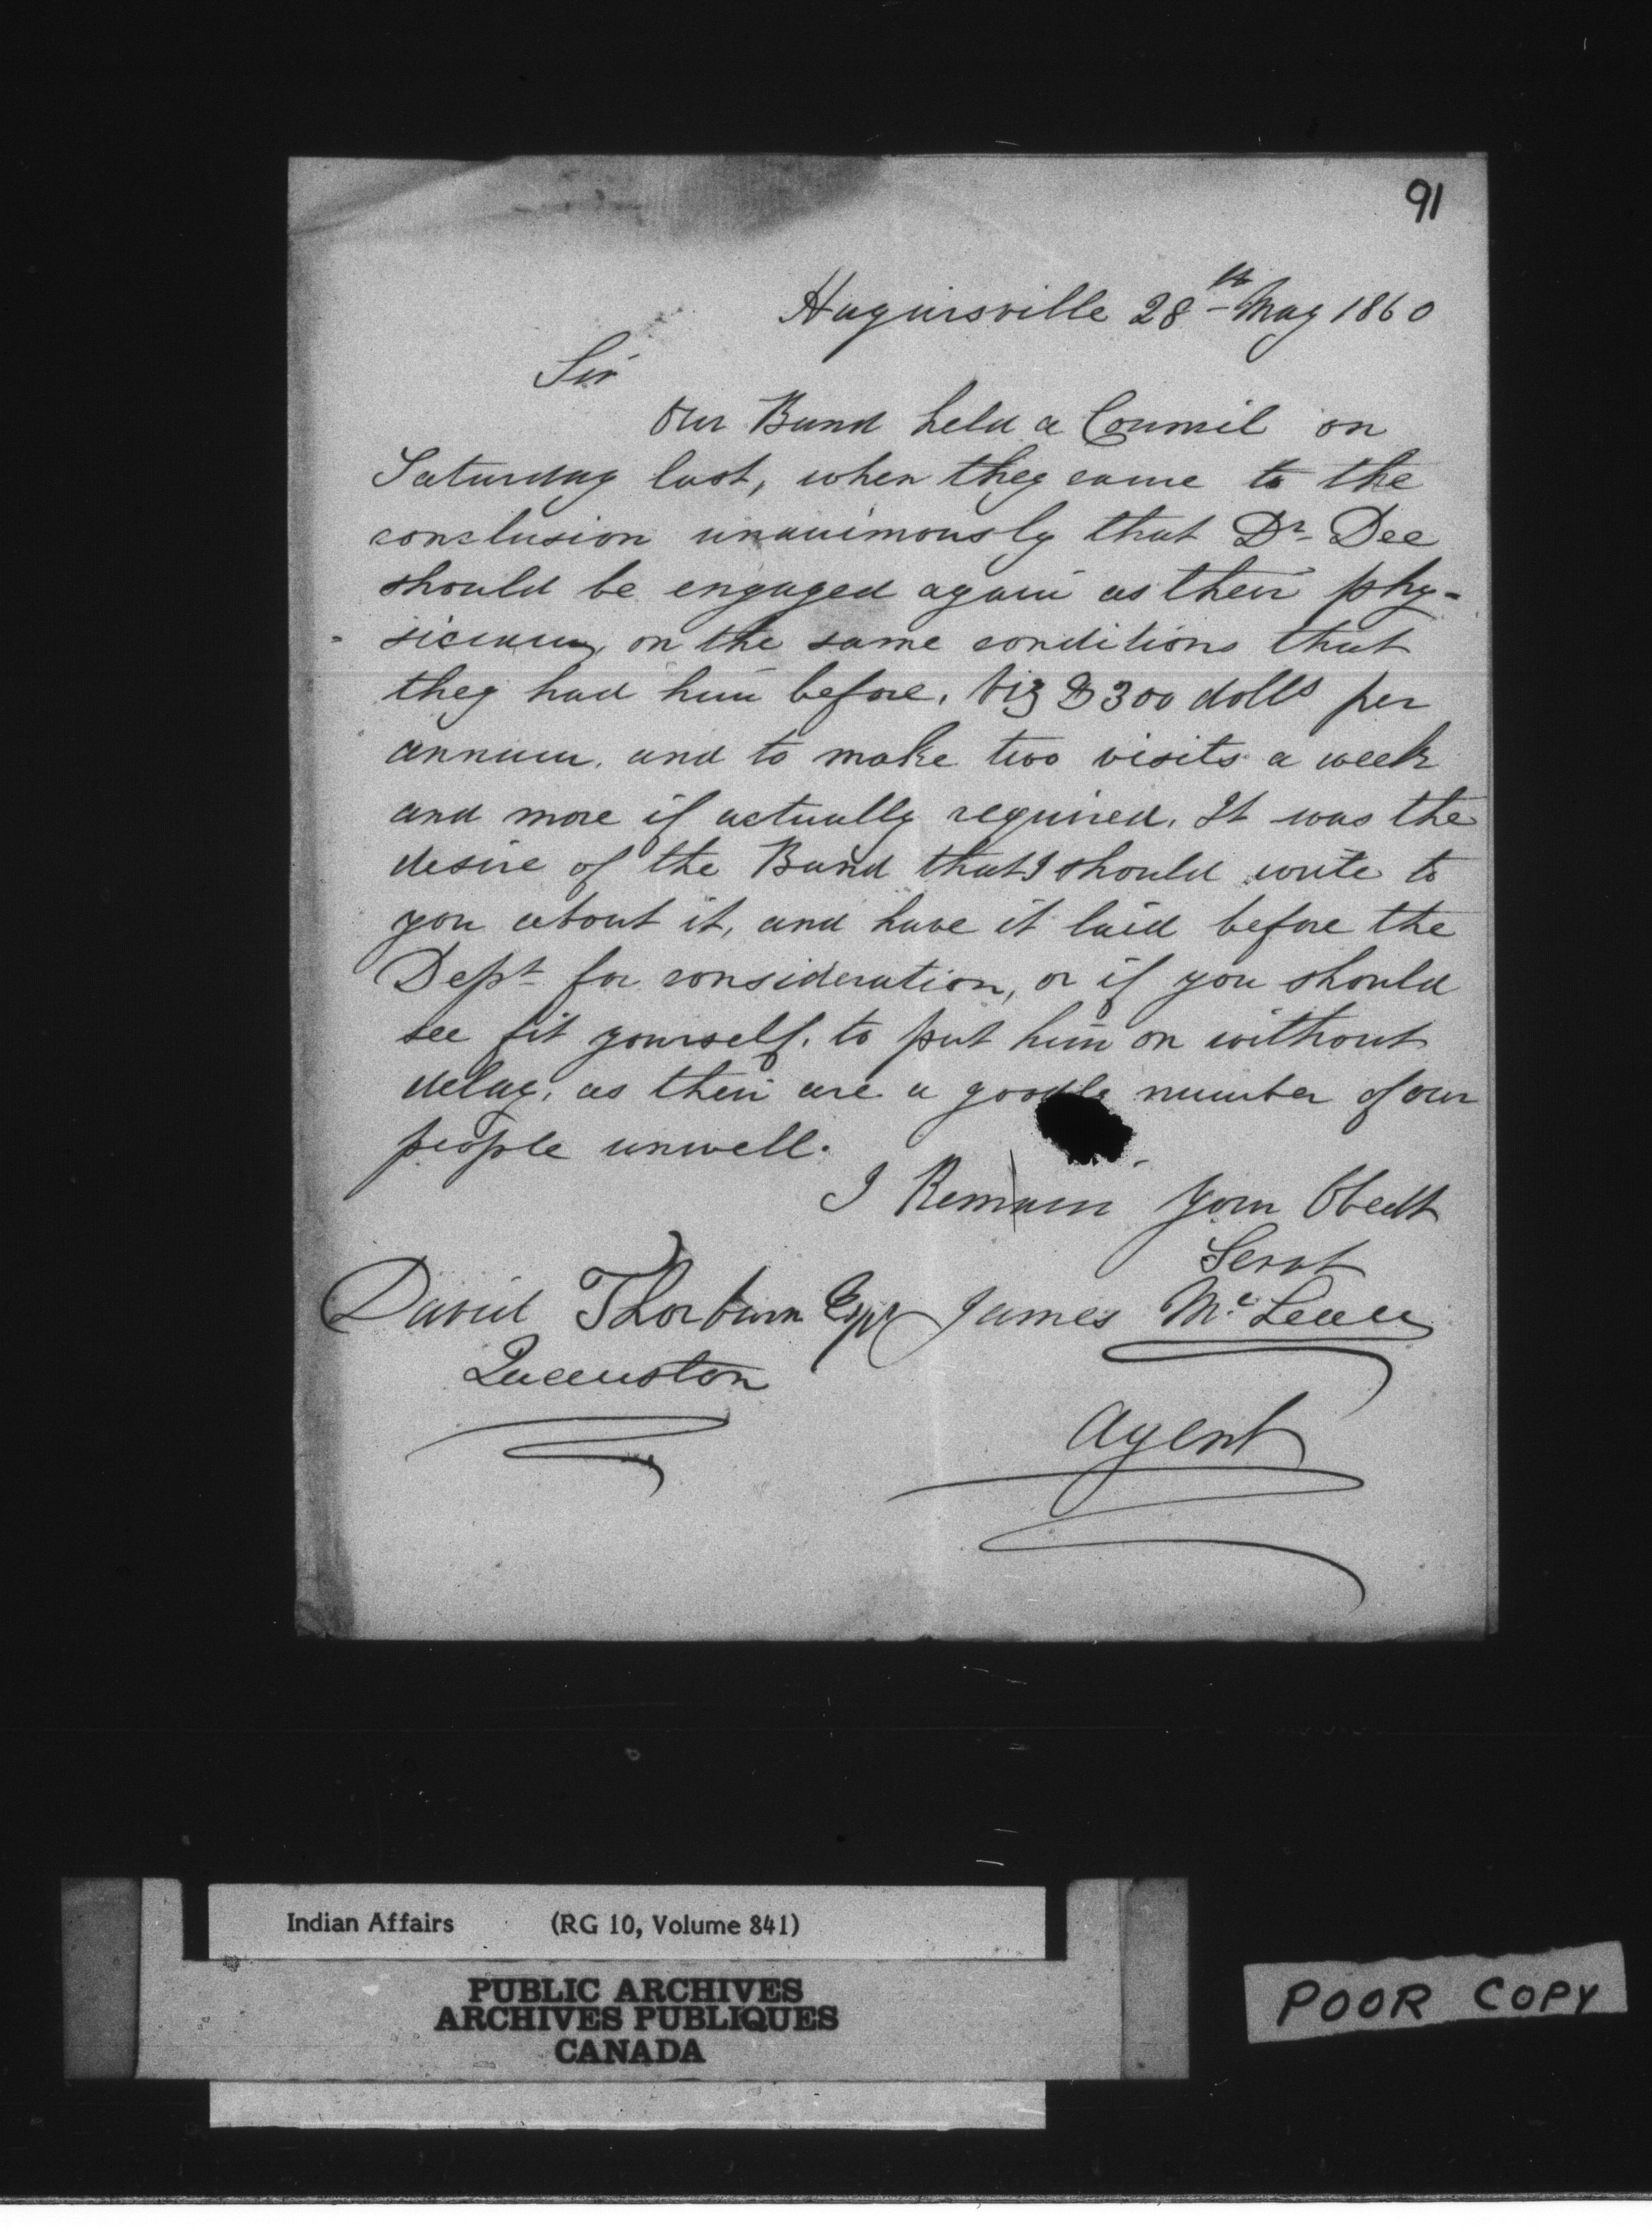 91
Haguirsville 28th May 1860
Sir
Our Band held a Council on
Saturday last, when they came to the
conclusion unanimously that Dr. Dee
should be engaged again as their phy-
- sician, on the same conditions that
they had him before. Viz $300 dolls per
annum, and to make two visits a week
and more if actually required. It was the
desire of the Band that I should write to
you about it, and have it laid before the
Dept for consideration, or if you should
see fit yourself, to put him on without
delay, as their are a goodly number of our
people unwell.
I Remain your Obedt
Servt
David Thorburn Esqr James McLean
Queenston
Agent
Indian Affairs (RG 10, Volume 841)
PUBLIC ARCHIVES
ARCHIVES PUBLIQUES
CANADA
POOR COPY